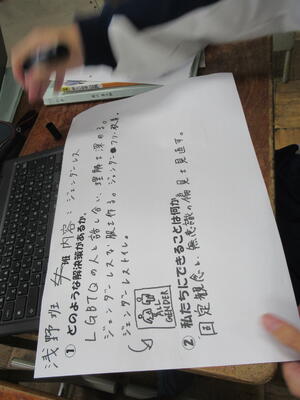 浅野班
班内容：ジェンダーレス
① どのような解決策があるか。
LGBTQの人と話し合い、理解を深める。
ジェンダーレスな服を作る。ジェンダーフリー教育。
ジェンダーレストイレ。
ALL
GENDER
② 私たちにできることは何か
固定観念や無意識の偏見を見直す。